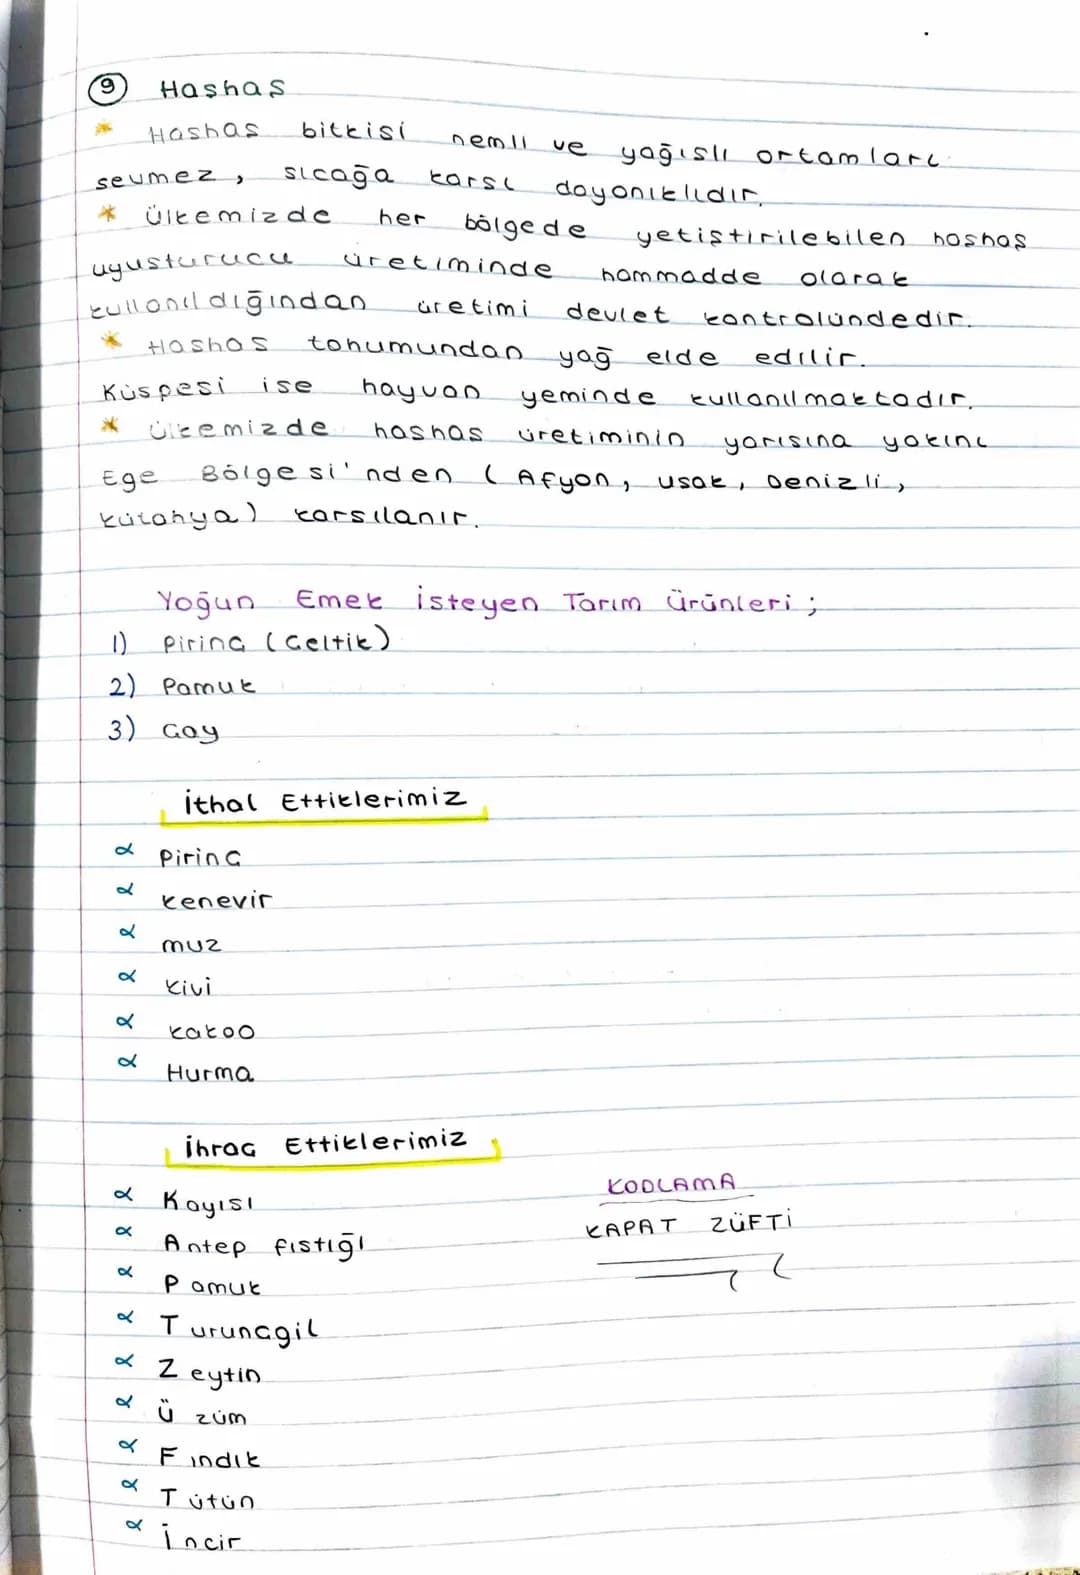 9 Haşhaş
* Haşhaş bitkisi nemli ve yağışlı ortamları
sevmez, sıcağa karşı dayanıklıdır.
* Ülkemizde her bölgede yetiştirilebilen haşhaş
uyuşturucu üretiminde hammadde olarak
kullanıldığından üretimi devlet kontrolündedir.
* Haşhaş tohumundan yağ elde edilir.
Küspesi ise hayvan yeminde kullanılmaktadır.
* Ülkemizde haşhaş üretiminin yarısına yakını
Ege Bölgesi'nden (Afyon, Uşak, Denizli,
Kütahya) karşılanır.
Yoğun Emek İsteyen Tarım Ürünleri;
1) Pirinç (Çeltik)
2) Pamuk
3) Çay
İthal Ettiklerimiz
α Pirinç
α Kenevir
α muz
α Kivi
α Kakao
α Hurma
İhraç Ettiklerimiz
α Kayısı
α Antep fıstığı
α Pamuk
α Turunçgil
α Zeytin
α Üzüm
α Fındık
α Tütün
α İncir
KODLAMA
KAPAT ZÜFTİ